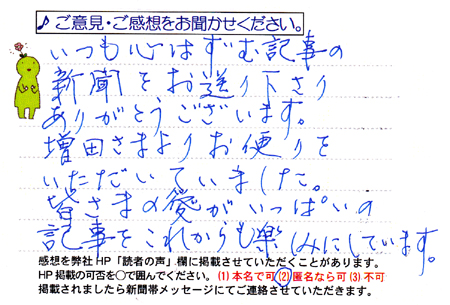 ♪ご意見・ご感想をお聞かせください。
いつも心はずむ記事の
新聞をお送り下さり
ありがとうございます。
増田さまよりお便りを
いただいていました。
皆さまの愛がいっぱいの
記事をこれからも楽しみにしています。
感想を弊社HP「読者の声」欄に掲載させていただくことがあります。
HP掲載の可否を○で囲んでください。(1)本名で可(2)匿名なら可(3)不可
掲載されましたら新聞帯メッセージにてご連絡させていただきます。